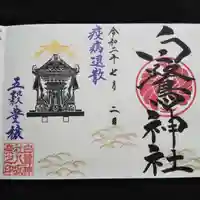 白鷺神社
令和二年七月二日
疫病退散
五穀豊穣